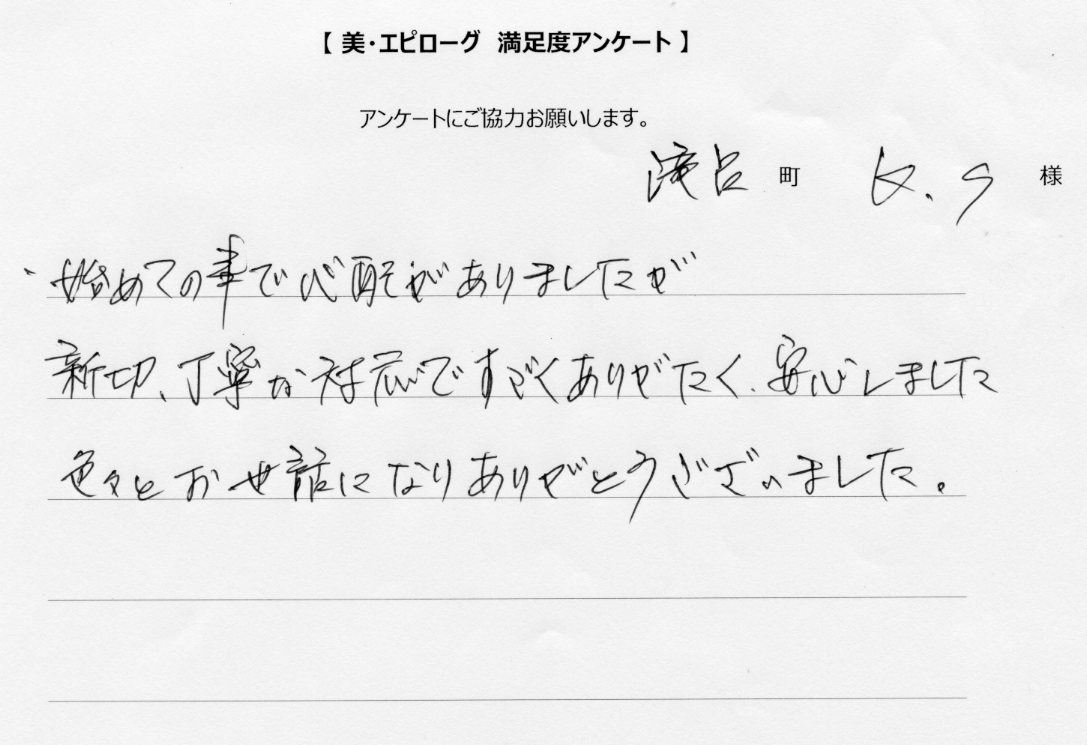 【 美・エピローグ 満足度アンケート 】
アンケートにご協力お願いします。
滝呂 町 K.S 様
、始めての事で心配がありましたが
新切、丁寧な対応ですごくありがたく、安心しました
色々とお世話になりありがとうございました。